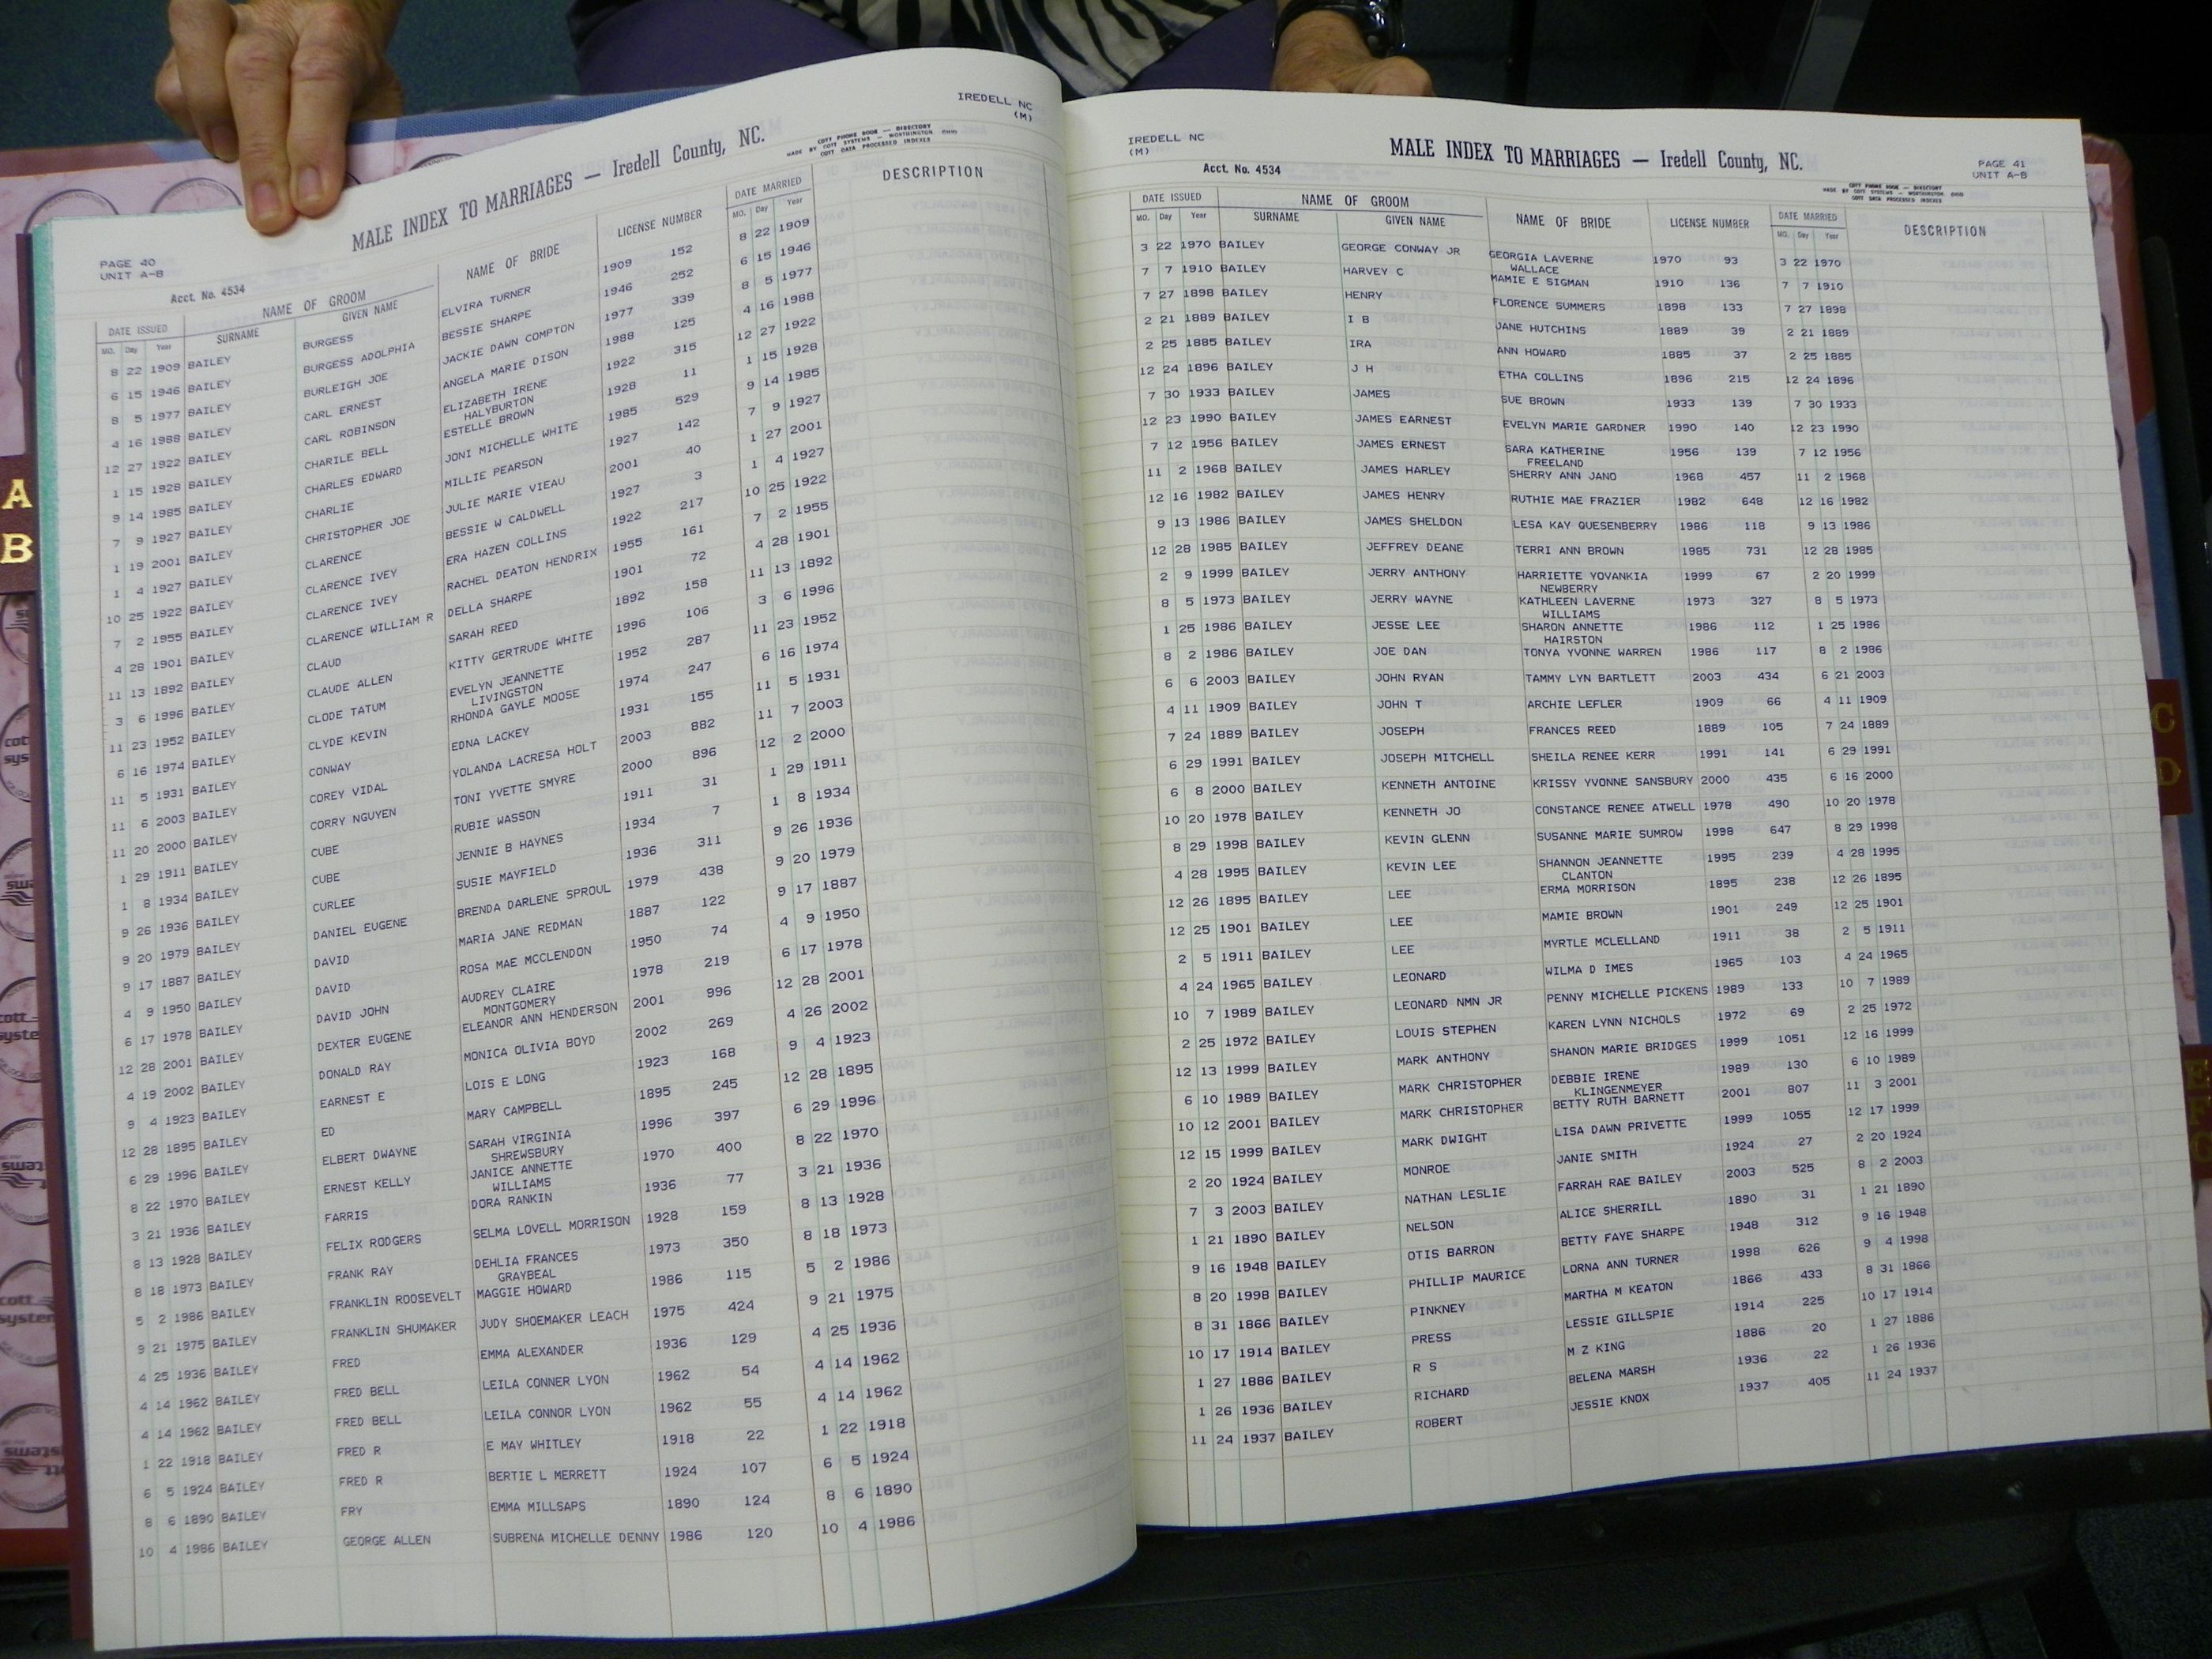 IREDELL NC
(M)
MALE INDEX TO MARRIAGES — Iredell County, NC.
COTT PHONE BOOK — DIRECTORY
MADE BY COTT SYSTEMS — WORTHINGTON, OHIO
COTT DATA PROCESSED INDEXES
PAGE 40
UNIT A-B
Acct. No. 4534
DATE ISSUED NAME OF GROOM NAME OF BRIDE LICENSE NUMBER DATE MARRIED DESCRIPTION
MO. Day Year SURNAME GIVEN NAME MO. Day Year
8 22 1909 BAILEY BURGESS ELVIRA TURNER 1909 152 8 22 1909
6 15 1946 BAILEY BURGESS ADOLPHIA BESSIE SHARPE 1946 252 6 15 1946
8 5 1977 BAILEY BURLEIGH JOE JACKIE DAWN COMPTON 1977 339 8 5 1977
4 16 1988 BAILEY CARL ERNEST ANGELA MARIE DISON 1988 125 4 16 1988
12 27 1922 BAILEY CARL ROBINSON ELIZABETH IRENE 1922 315 12 27 1922
HALYBURTON
1 15 1928 BAILEY CHARILE BELL ESTELLE BROWN 1928 11 1 15 1928
9 14 1985 BAILEY CHARLES EDWARD JONI MICHELLE WHITE 1985 529 9 14 1985
7 9 1927 BAILEY CHARLIE MILLIE PEARSON 1927 142 7 9 1927
1 19 2001 BAILEY CHRISTOPHER JOE JULIE MARIE VIEAU 2001 40 1 27 2001
1 4 1927 BAILEY CLARENCE BESSIE W CALDWELL 1927 3 1 4 1927
10 25 1922 BAILEY CLARENCE IVEY ERA HAZEN COLLINS 1922 217 10 25 1922
7 2 1955 BAILEY CLARENCE IVEY RACHEL DEATON HENDRIX 1955 161 7 2 1955
4 28 1901 BAILEY CLARENCE WILLIAM R DELLA SHARPE 1901 72 4 28 1901
11 13 1892 BAILEY CLAUD SARAH REED 1892 158 11 13 1892
3 6 1996 BAILEY CLAUDE ALLEN KITTY GERTRUDE WHITE 1996 106 3 6 1996
11 23 1952 BAILEY CLODE TATUM EVELYN JEANNETTE 1952 287 11 23 1952
LIVINGSTON
6 16 1974 BAILEY CLYDE KEVIN RHONDA GAYLE MOOSE 1974 247 6 16 1974
11 5 1931 BAILEY CONWAY EDNA LACKEY 1931 155 11 5 1931
11 6 2003 BAILEY COREY VIDAL YOLANDA LACRESA HOLT 2003 882 11 7 2003
11 20 2000 BAILEY CORRY NGUYEN TONI YVETTE SMYRE 2000 896 12 2 2000
1 29 1911 BAILEY CUBE RUBIE WASSON 1911 31 1 29 1911
1 8 1934 BAILEY CUBE JENNIE B HAYNES 1934 7 1 8 1934
9 26 1936 BAILEY CURLEE SUSIE MAYFIELD 1936 311 9 26 1936
9 20 1979 BAILEY DANIEL EUGENE BRENDA DARLENE SPROUL 1979 438 9 20 1979
9 17 1887 BAILEY DAVID MARIA JANE REDMAN 1887 122 9 17 1887
4 9 1950 BAILEY DAVID ROSA MAE MCCLENDON 1950 74 4 9 1950
6 17 1978 BAILEY DAVID JOHN AUDREY CLAIRE 1978 219 6 17 1978
MONTGOMERY
12 28 2001 BAILEY DEXTER EUGENE ELEANOR ANN HENDERSON 2001 996 12 28 2001
4 19 2002 BAILEY DONALD RAY MONICA OLIVIA BOYD 2002 269 4 26 2002
9 4 1923 BAILEY EARNEST E LOIS E LONG 1923 168 9 4 1923
12 28 1895 BAILEY ED MARY CAMPBELL 1895 245 12 28 1895
6 29 1996 BAILEY ELBERT DWAYNE SARAH VIRGINIA 1996 397 6 29 1996
SHREWSBURY
8 22 1970 BAILEY ERNEST KELLY JANICE ANNETTE 1970 400 8 22 1970
WILLIAMS
3 21 1936 BAILEY FARRIS DORA RANKIN 1936 77 3 21 1936
8 13 1928 BAILEY FELIX RODGERS SELMA LOVELL MORRISON 1928 159 8 13 1928
8 18 1973 BAILEY FRANK RAY DEHLIA FRANCES 1973 350 8 18 1973
GRAYBEAL
5 2 1986 BAILEY FRANKLIN ROOSEVELT MAGGIE HOWARD 1986 115 5 2 1986
9 21 1975 BAILEY FRANKLIN SHUMAKER JUDY SHOEMAKER LEACH 1975 424 9 21 1975
4 25 1936 BAILEY FRED EMMA ALEXANDER 1936 129 4 25 1936
4 14 1962 BAILEY FRED BELL LEILA CONNER LYON 1962 54 4 14 1962
4 14 1962 BAILEY FRED BELL LEILA CONNOR LYON 1962 55 4 14 1962
1 22 1918 BAILEY FRED R E MAY WHITLEY 1918 22 1 22 1918
6 5 1924 BAILEY FRED R BERTIE L MERRETT 1924 107 6 5 1924
8 6 1890 BAILEY FRY EMMA MILLSAPS 1890 124 8 6 1890
10 4 1986 BAILEY GEORGE ALLEN SUBRENA MICHELLE DENNY 1986 120 10 4 1986
IREDELL NC
(M)
MALE INDEX TO MARRIAGES — Iredell County, NC.
PAGE 41
UNIT A-B
Acct. No. 4534
COTT PHONE BOOK — DIRECTORY
MADE BY COTT SYSTEMS — WORTHINGTON, OHIO
COTT DATA PROCESSED INDEXES
DATE ISSUED NAME OF GROOM NAME OF BRIDE LICENSE NUMBER DATE MARRIED DESCRIPTION
MO. Day Year SURNAME GIVEN NAME MO. Day Year
3 22 1970 BAILEY GEORGE CONWAY JR GEORGIA LAVERNE 1970 93 3 22 1970
WALLACE
7 7 1910 BAILEY HARVEY C MAMIE E SIGMAN 1910 136 7 7 1910
7 27 1898 BAILEY HENRY FLORENCE SUMMERS 1898 133 7 27 1898
2 21 1889 BAILEY I B JANE HUTCHINS 1889 39 2 21 1889
2 25 1885 BAILEY IRA ANN HOWARD 1885 37 2 25 1885
12 24 1896 BAILEY J H ETHA COLLINS 1896 215 12 24 1896
7 30 1933 BAILEY JAMES SUE BROWN 1933 139 7 30 1933
12 23 1990 BAILEY JAMES EARNEST EVELYN MARIE GARDNER 1990 140 12 23 1990
7 12 1956 BAILEY JAMES ERNEST SARA KATHERINE 1956 139 7 12 1956
FREELAND
11 2 1968 BAILEY JAMES HARLEY SHERRY ANN JANO 1968 457 11 2 1968
12 16 1982 BAILEY JAMES HENRY RUTHIE MAE FRAZIER 1982 648 12 16 1982
9 13 1986 BAILEY JAMES SHELDON LESA KAY QUESENBERRY 1986 118 9 13 1986
12 28 1985 BAILEY JEFFREY DEANE TERRI ANN BROWN 1985 731 12 28 1985
2 9 1999 BAILEY JERRY ANTHONY HARRIETTE YOVANKIA 1999 67 2 20 1999
NEWBERRY
8 5 1973 BAILEY JERRY WAYNE KATHLEEN LAVERNE 1973 327 8 5 1973
WILLIAMS
1 25 1986 BAILEY JESSE LEE SHARON ANNETTE 1986 112 1 25 1986
HAIRSTON
8 2 1986 BAILEY JOE DAN TONYA YVONNE WARREN 1986 117 8 2 1986
6 6 2003 BAILEY JOHN RYAN TAMMY LYN BARTLETT 2003 434 6 21 2003
4 11 1909 BAILEY JOHN T ARCHIE LEFLER 1909 66 4 11 1909
7 24 1889 BAILEY JOSEPH FRANCES REED 1889 105 7 24 1889
6 29 1991 BAILEY JOSEPH MITCHELL SHEILA RENEE KERR 1991 141 6 29 1991
6 8 2000 BAILEY KENNETH ANTOINE KRISSY YVONNE SANSBURY 2000 435 6 16 2000
10 20 1978 BAILEY KENNETH JO CONSTANCE RENEE ATWELL 1978 490 10 20 1978
8 29 1998 BAILEY KEVIN GLENN SUSANNE MARIE SUMROW 1998 647 8 29 1998
4 28 1995 BAILEY KEVIN LEE SHANNON JEANNETTE 1995 239 4 28 1995
CLANTON
12 26 1895 BAILEY LEE ERMA MORRISON 1895 238 12 26 1895
12 25 1901 BAILEY LEE MAMIE BROWN 1901 249 12 25 1901
2 5 1911 BAILEY LEE MYRTLE MCLELLAND 1911 38 2 5 1911
4 24 1965 BAILEY LEONARD WILMA D IMES 1965 103 4 24 1965
10 7 1989 BAILEY LEONARD NMN JR PENNY MICHELLE PICKENS 1989 133 10 7 1989
2 25 1972 BAILEY LOUIS STEPHEN KAREN LYNN NICHOLS 1972 69 2 25 1972
12 13 1999 BAILEY MARK ANTHONY SHANON MARIE BRIDGES 1999 1051 12 16 1999
6 10 1989 BAILEY MARK CHRISTOPHER DEBBIE IRENE 1989 130 6 10 1989
KLINGENMEYER
10 12 2001 BAILEY MARK CHRISTOPHER BETTY RUTH BARNETT 2001 807 11 3 2001
12 15 1999 BAILEY MARK DWIGHT LISA DAWN PRIVETTE 1999 1055 12 17 1999
2 20 1924 BAILEY MONROE JANIE SMITH 1924 27 2 20 1924
7 3 2003 BAILEY NATHAN LESLIE FARRAH RAE BAILEY 2003 525 8 2 2003
1 21 1890 BAILEY NELSON ALICE SHERRILL 1890 31 1 21 1890
9 16 1948 BAILEY OTIS BARRON BETTY FAYE SHARPE 1948 312 9 16 1948
8 20 1998 BAILEY PHILLIP MAURICE LORNA ANN TURNER 1998 626 9 4 1998
8 31 1866 BAILEY PINKNEY MARTHA M KEATON 1866 433 8 31 1866
10 17 1914 BAILEY PRESS LESSIE GILLSPIE 1914 225 10 17 1914
1 27 1886 BAILEY R S M Z KING 1886 20 1 27 1886
1 26 1936 BAILEY RICHARD BELENA MARSH 1936 22 1 26 1936
11 24 1937 BAILEY ROBERT JESSIE KNOX 1937 405 11 24 1937
A
B
C
D